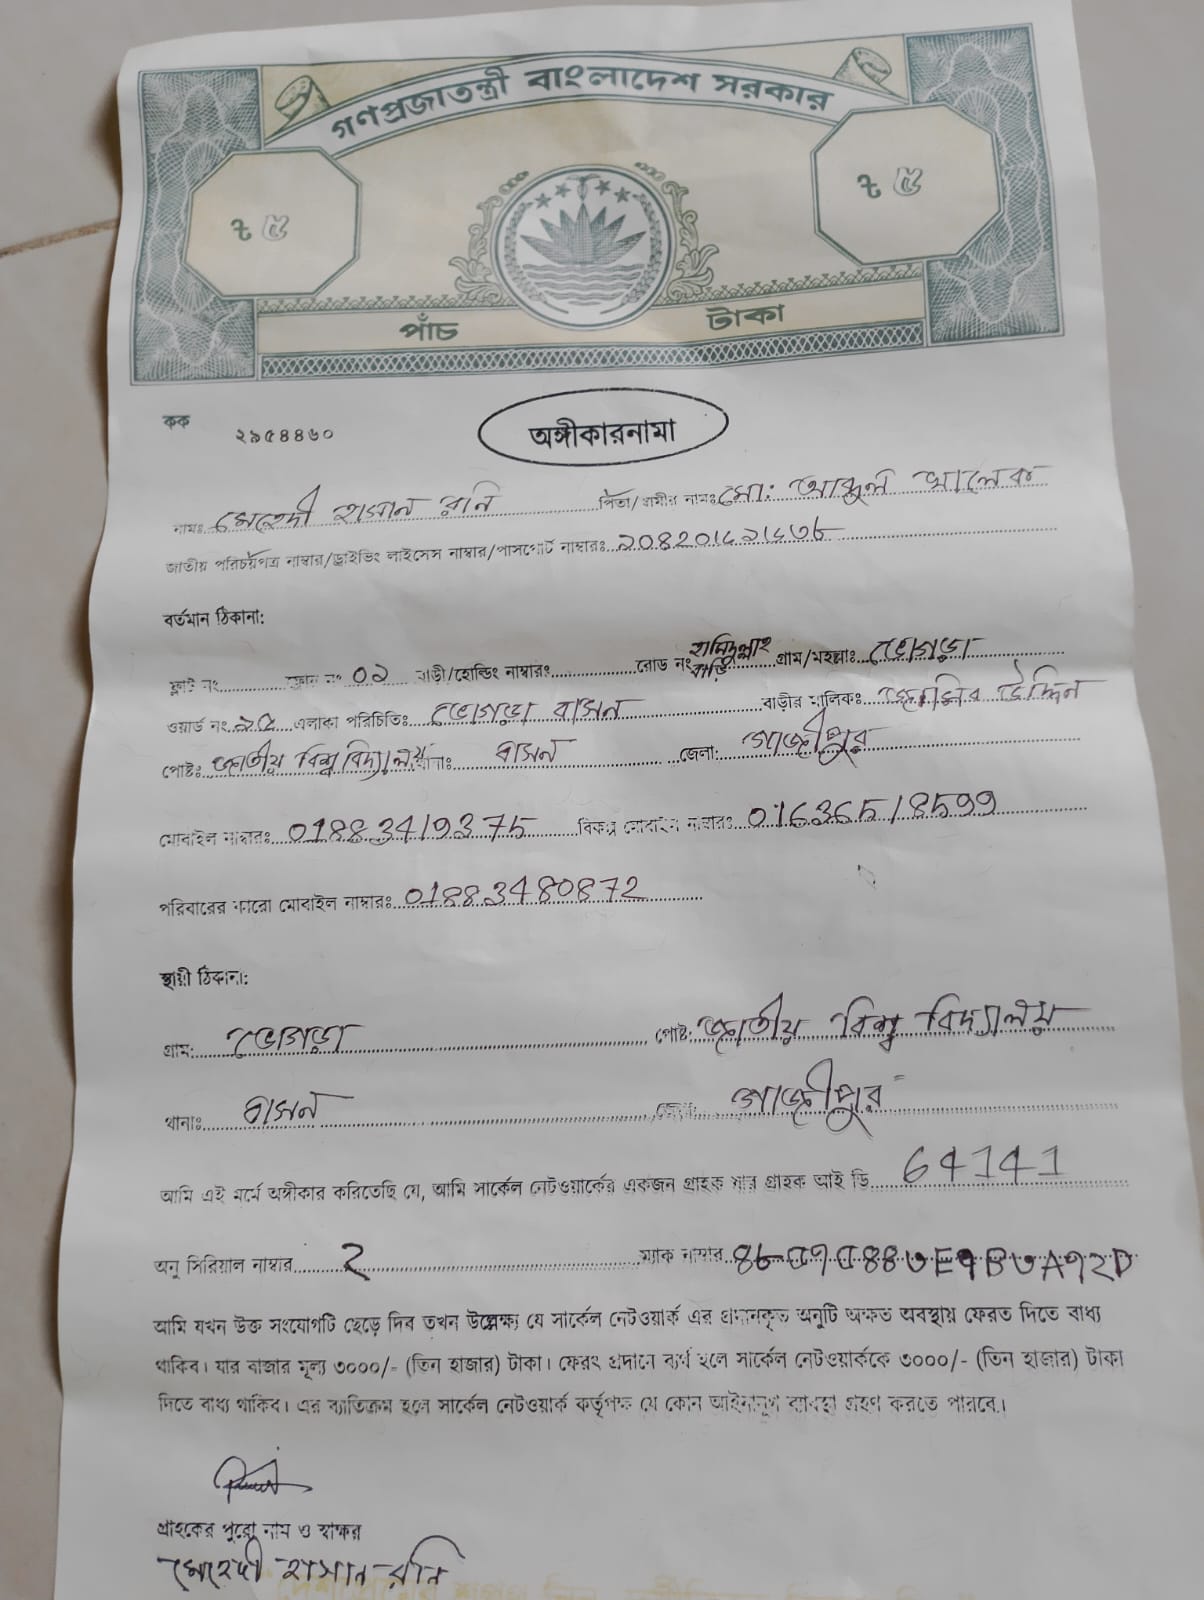 গণপ্রজাতন্ত্রী বাংলাদেশ সরকার
৳ ৫ ৳ ৫
পাঁচ টাকা
কক ২৯৫৪৪৬০
অঙ্গীকারনামা
নামঃ মেহেদী হাসান রনি পিতা/স্বামীর নামঃ মো: আব্দুল খালেক
জাতীয় পরিচয়পত্র নাম্বার/ড্রাইভিং লাইসেন্স নাম্বার/পাসপোর্ট নাম্বারঃ
বর্তমান ঠিকানা:
ফ্লাট নং ফ্লোর নং ০২ বাড়ী/হোল্ডিং নাম্বারঃ রোড নং বাড়ি গ্রাম/মহল্লাঃ ভোগড়া
ওয়ার্ড নং ১৫ এলাকা পরিচিতিঃ ভোগড়া বাসন বাড়ীর মালিকঃ উদ্দিন
পোষ্টঃ জাতীয় বিশ্ববিদ্যালয় থানাঃ বাসন জেলা: গাজীপুর
মোবাইল নাম্বারঃ 01883419375 বিকল্প মোবাইল নাম্বারঃ 01636518599
পরিবারের কারো মোবাইল নাম্বারঃ 01883480872
স্থায়ী ঠিকানা:
গ্রাম: ভোগড়া পোষ্ট: জাতীয় বিশ্ব বিদ্যালয়
থানাঃ বাসন জেলা: গাজীপুর
আমি এই মর্মে অঙ্গীকার করিতেছি যে, আমি সার্কেল নেটওয়ার্কের একজন গ্রাহক যার গ্রাহক আই ডি 64141
অনু সিরিয়াল নাম্বার 2 ম্যাক নাম্বার
আমি যখন উক্ত সংযোগটি ছেড়ে দিব তখন উল্লেক্ষ্য যে সার্কেল নেটওয়ার্ক এর প্রদানকৃত অনুটি অক্ষত অবস্থায় ফেরত দিতে বাধ্য
থাকিব। যার বাজার মূল্য ৩০০০/- (তিন হাজার) টাকা। ফেরৎ প্রদানে ব্যর্থ হলে সার্কেল নেটওয়ার্ককে ৩০০০/- (তিন হাজার) টাকা
দিতে বাধ্য থাকিব। এর ব্যতিক্রম হলে সার্কেল নেটওয়ার্ক কর্তৃপক্ষ যে কোন আইনানুগ ব্যবস্থা গ্রহণ করতে পারবে।
গ্রাহকের পুরো নাম ও স্বাক্ষর
মেহেদী হাসান রনি